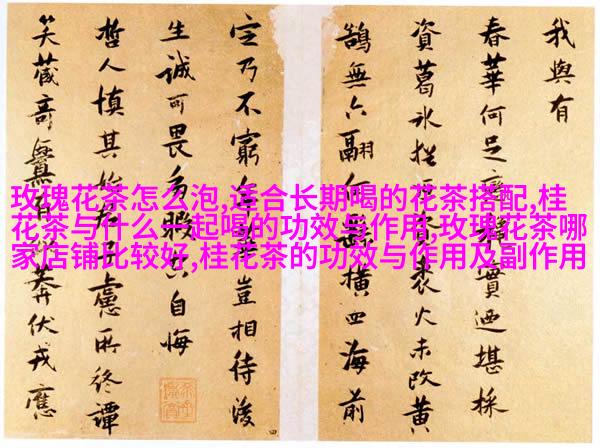 我與有
春華何足實迺堪採
資葛氷裘火未改黃
鵠無六翮何橫四海前
定乃不窮豈相待後
生誠可畏多暇自悔
哲人慎其慮所終譚
笑蔵伏戎應
玫瑰花茶怎么泡,适合长期喝的花茶搭配,桂
花茶与什么一起喝的功效与作用,玫瑰花茶哪
家店铺比较好,桂花茶的功效与作用及副作用